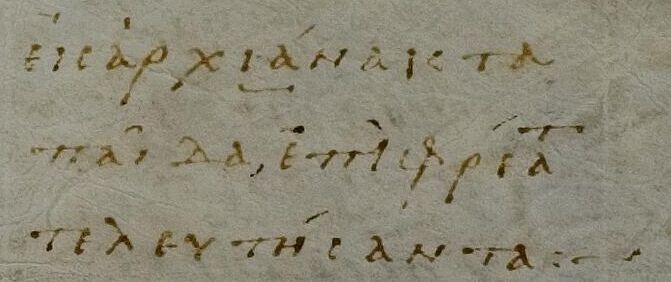 εἰς ἀρχιάνακτα
παῖδα, ἐπὶ φρέατ
τελευτήσαντα:~